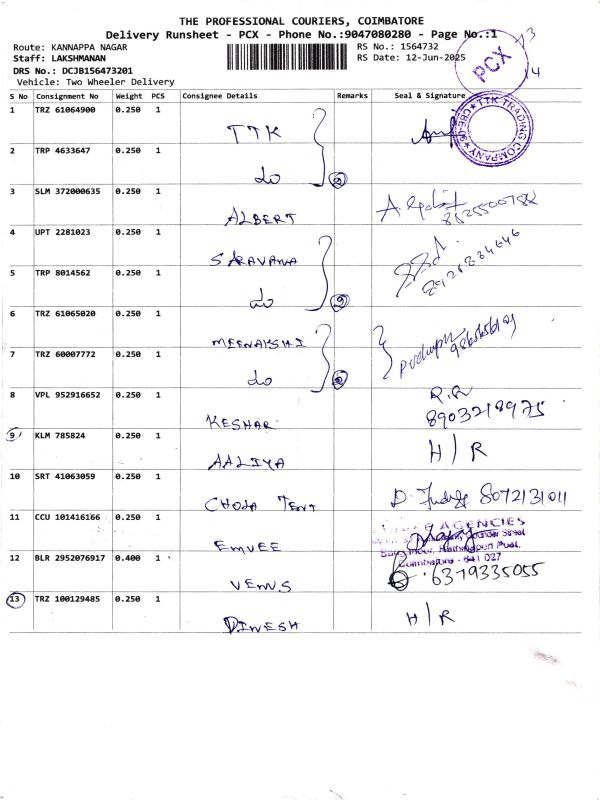 THE PROFESSIONAL COURIERS, COIMBATORE
Delivery Runsheet - PCX - Phone No.:9047080280 - Page No.:1
Route: KANNAPPA NAGAR
RS No.: 1564732
Staff: LAKSHMANAN
RS Date: 12-Jun-2025
DRS No.: DCJB156473201
Vehicle: Two Wheeler Delivery
PCX
13
14
S No Consignment No Weight PCS Consignee Details Remarks Seal & Signature
1 TRZ 61064900 0.250 1 TTK
TTK TRADING COMPANY CBE-06
2 TRP 4633647 0.250 1 do 2
3 SLM 372000635 0.250 1 ALBERT
4 UPT 2281023 0.250 1 SARAVANA
5 TRP 8014562 0.250 1 do 2
6 TRZ 61065020 0.250 1 MEENAKSHI
7 TRZ 60007772 0.250 1 do 2
8 VPL 952916652 0.250 1 KESHAR R.R
8903218975
9 KLM 785824 0.250 1 AALIYA H/R
10 SRT 41063059 0.250 1 CHOLA TENT 8072131011
11 CCU 101416166 0.250 1 EMVEE
AGENCIES
Street
Post,
Coimbatore - 641 027
12 BLR 2952076917 0.400 1 VENUS 6379335055
13 TRZ 100129485 0.250 1 DINESH H/R